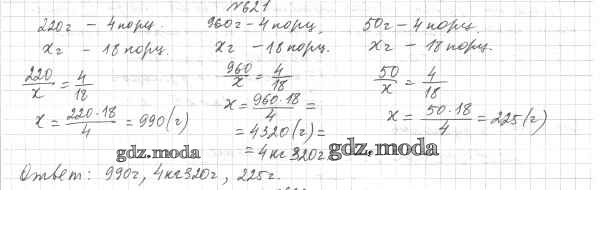 №621
220г - 4 порц.
xг - 18 порц.
220/x = 4/18
x = 220·18/4 = 990(г)
960г - 4 порц.
xг - 18 порц.
960/x = 4/18
x = 960·18/4 =
= 4320(г) =
= 4кг 320г
50г - 4 порц.
xг - 18 порц.
50/x = 4/18
x = 50·18/4 = 225(г)
gdz.moda
gdz.moda
Ответ: 990г, 4кг320г, 225г.